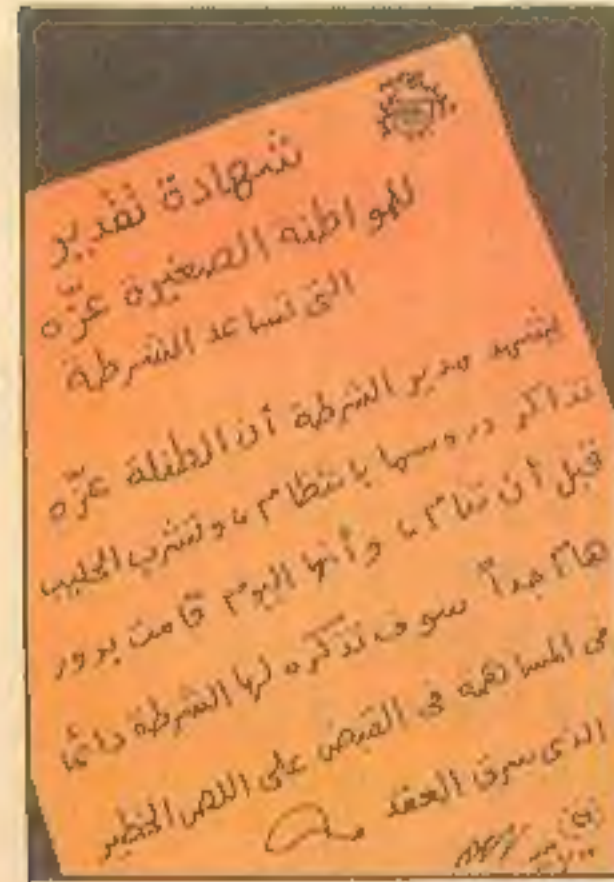 شهادة تقدير
للمواطنه الصغيرة عزّه
التى تساعد الشرطة
يشهد مدير الشرطة أن الطفلة عزّه
تذاكر دروسها بانتظام، وتشرب الحليب
قبل أن تنام، وأنها اليوم قامت بدور
هام جداً سوف تذكره لها الشرطة دائماً
فى المساهمه فى القبض على اللص الخطير
الذى سرق العقد